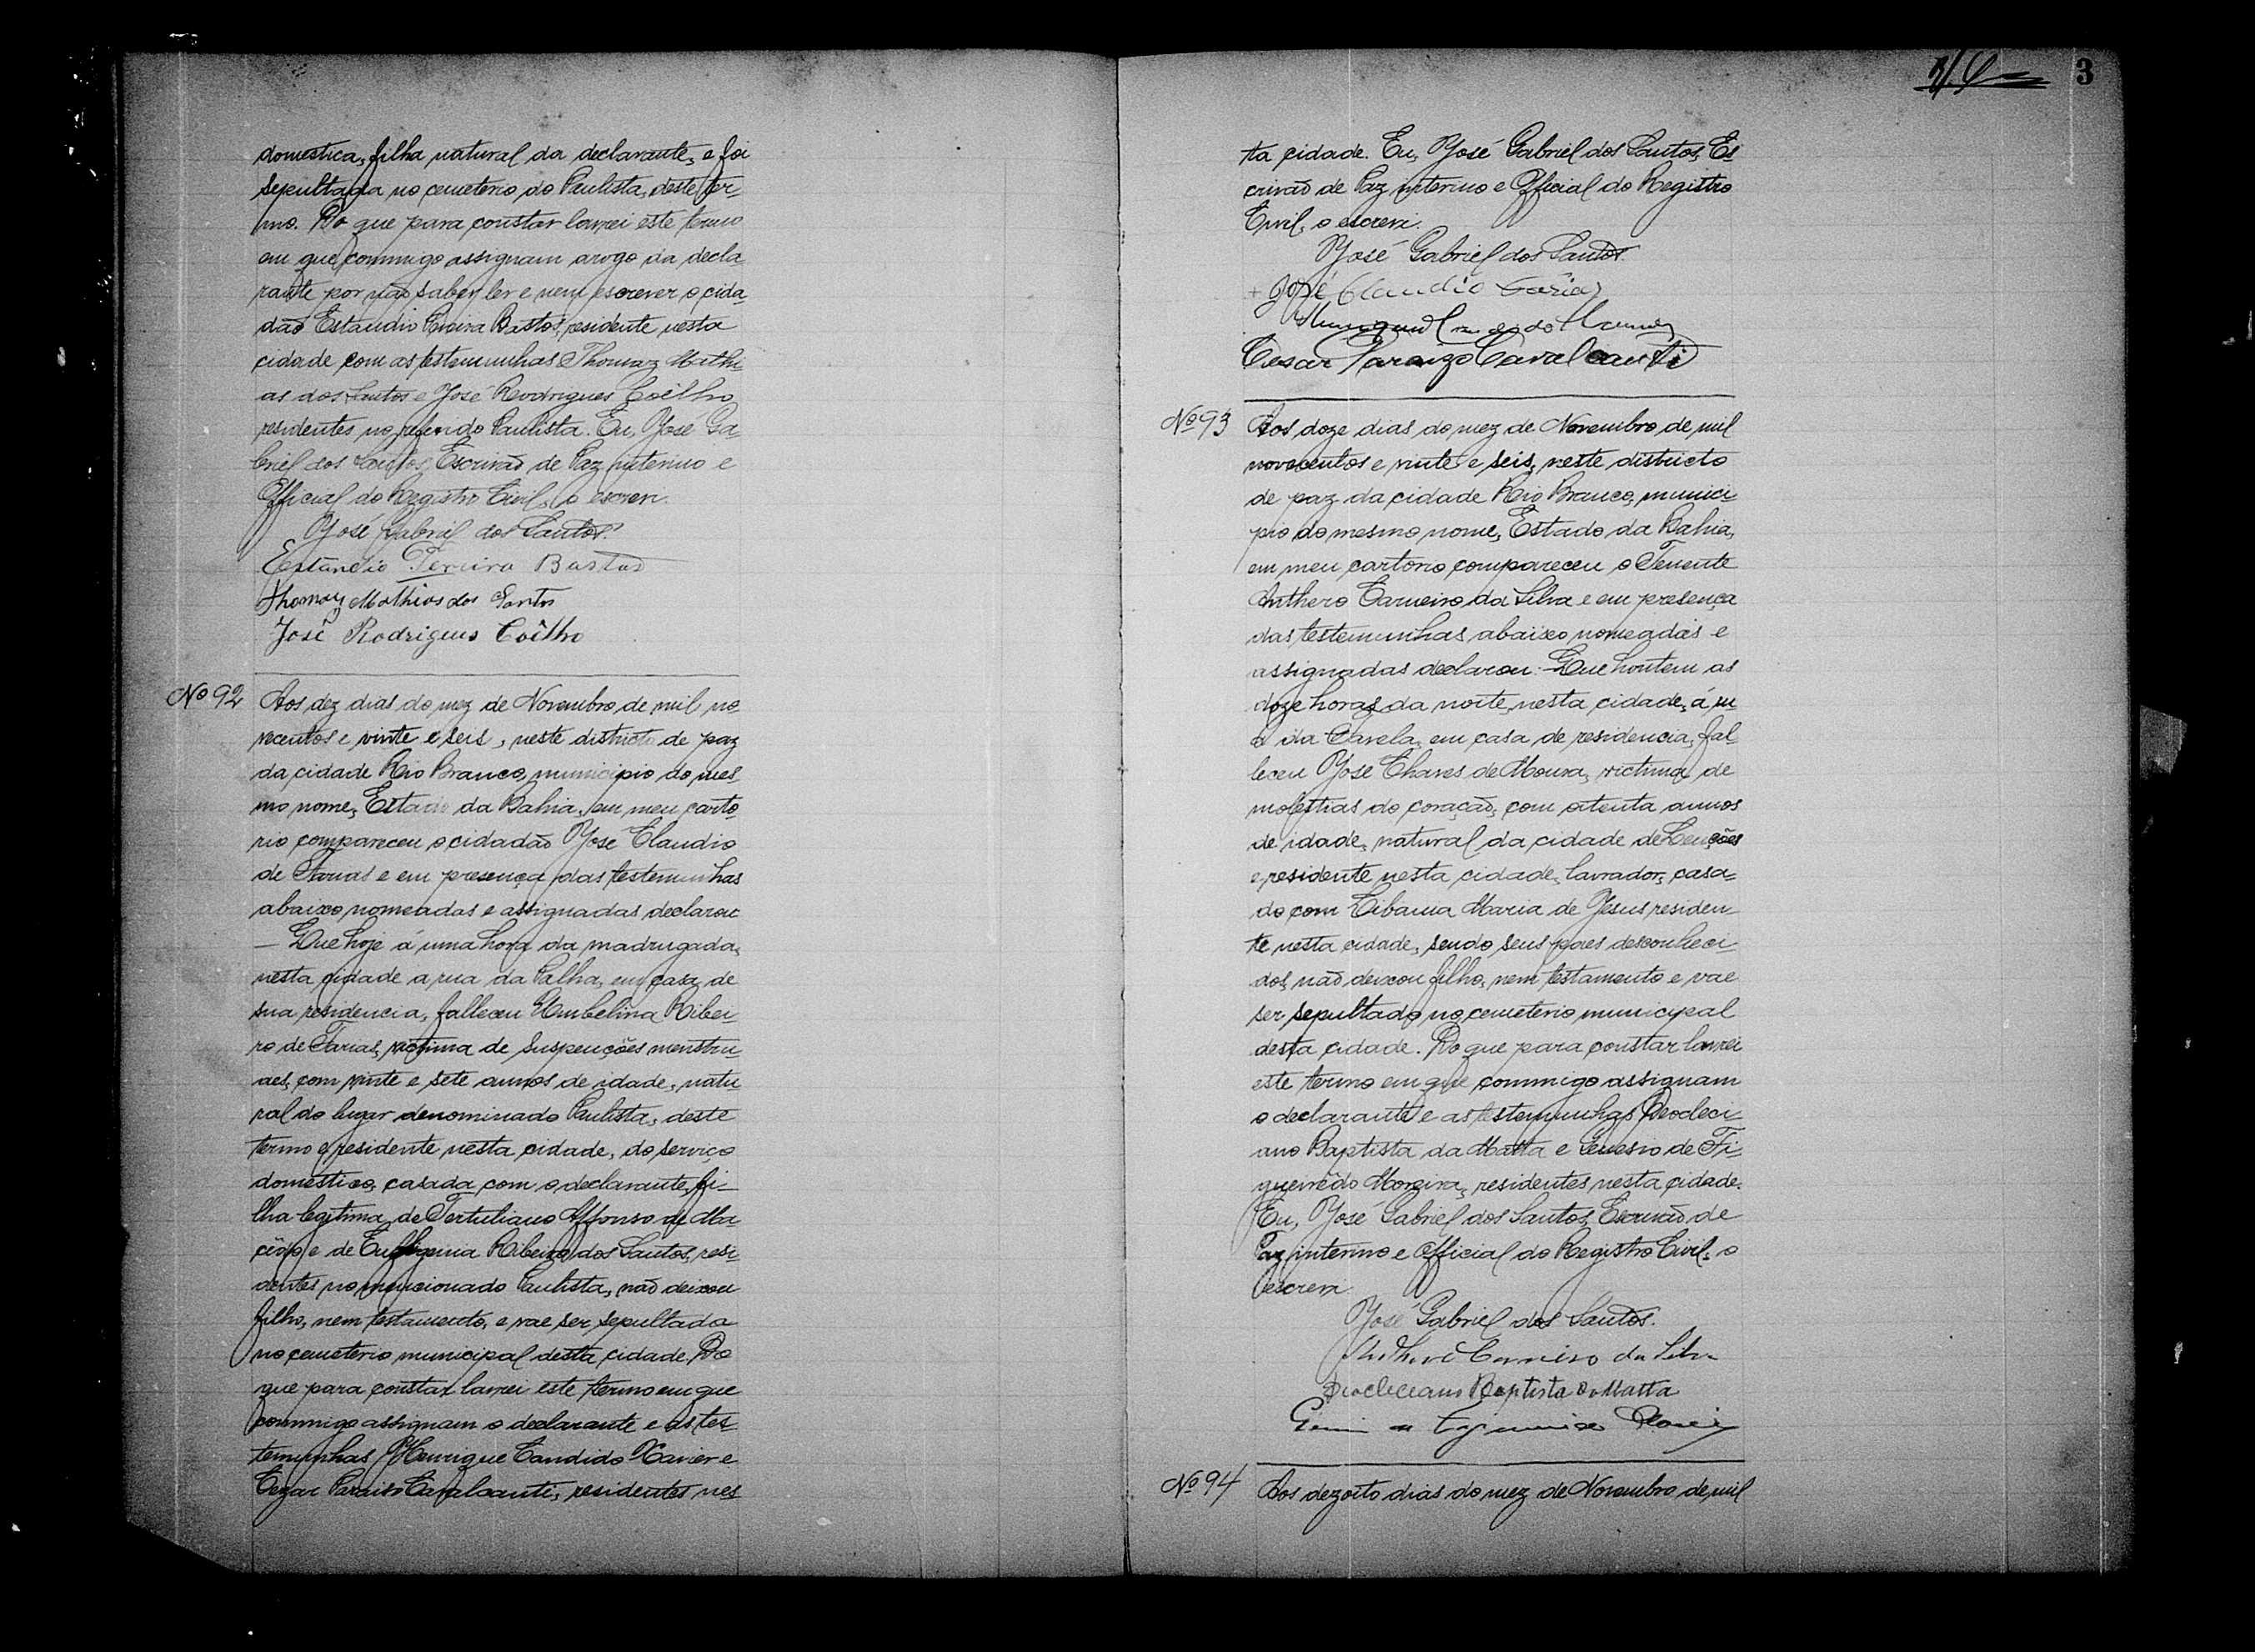 domestica, filha natural da declarante, e foi
sepultada no cemeterio do Paulista, deste ter-
mo. Do que para constar lavrei este termo
em que commigo assignam arogo da decla-
rante por não saber ler e nem escrever o cida-
dão Estaudio Pereira Bastos, residente nesta
cidade com as testemunhas Thomaz Mathi-
as dos Santos e José Rodrigues Coêlho
residentes no referido Paulista. Eu, José Ga-
briel dos Santos, Escrivão de Paz interino e
Official do Registro Civil, o escrevi.
José Gabriel dos Santos.
Pereira Bastos
Thomaz Mathias dos Santos
José Rodrigues Coêlho
Nº 92 Aos dez dias do mez de Novembro de mil no-
vecentos e vinte e seis, neste districto de paz
da cidade Rio Branco, municipio do mes-
mo nome, Estado da Bahia, em meu carto-
rio compareceu o cidadão José Claudio
de Farias e em presença das testemunhas
abaixo nomeadas e assignadas declarou
— Que hoje á uma hora da madrugada,
nesta cidade a rua da Palha, em casa de
sua residencia, falleceu Umbelina Ribei-
ro de Farias, victima de suspenções menstru-
aes, com vinte e sete annos de idade, natu-
ral do lugar denominado Paulista, deste
termo e residente nesta cidade, do serviço
domestico, casada com o declarante, fi-
lha legitima de Tertuliano Affonso de Ma-
e de Ribeiro dos Santos, resi-
dentes no mencionado Paulista, não deixou
filho, nem testamento, e vae ser sepultada
no cemeterio municipal desta cidade. Do
que para constar lavrei este termo em que
commigo assignam o declarante e as tes-
temunhas Henrique Candido Xavier e
Cezar Paraiso Cavalcante, residentes nes-
3
ta cidade. Eu, José Gabriel dos Santos, Es-
crivão de Paz interino e Official do Registro
Civil, o escrevi.
José Gabriel dos Santos.
José Claudio Farias
Cesar Paraizo Cavalcanti
Nº 93 Aos doze dias do mez de Novembro de mil
novecentos e vinte e seis, neste districto
de paz da cidade Rio Branco, munici-
pio do mesmo nome, Estado da Bahia,
em meu cartorio compareceu o Tenente
Anthero Carneiro da Silva e em presença
das testemunhas abaixo nomeadas e
assignadas declarou: — Que hontem as
doze horas da noite, nesta cidade, á ru-
a da Favela, em casa de residencia, fal-
leceu José Chaves de Moura, victima de
molestias do coração, com oitenta annos
de idade, natural da cidade de Lençóes
e residente nesta cidade, lavrador, casa-
do com Maria de Jesus residen-
te nesta cidade, sendo seus paes desconheci-
dos, não deixou filho, nem testamento e vae
ser sepultado no cemeterio municipal
desta cidade. Do que para constar lavrei
este termo em que commigo assignam
o declarante e as testemunhas Deocleci-
ano Baptista da Matta e Genesio de Fi-
gueirêdo Moreira, residentes nesta cidade.
Eu, José Gabriel dos Santos, Escrivão de
Paz interino e Official do Registro Civil, o
escrevi.
José Gabriel dos Santos.
Anthero Carneiro da Silva
Deocleciano Baptista da Matta
Nº 94 Aos dezoito dias do mez de Novembro de mil